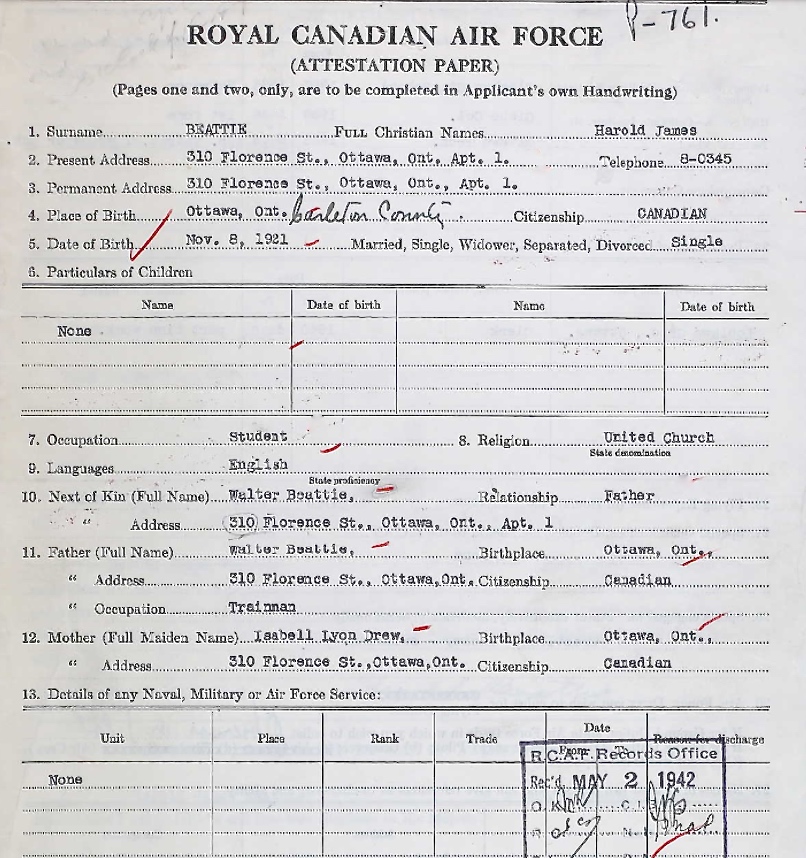 P-761.
ROYAL CANADIAN AIR FORCE
(ATTESTATION PAPER)
(Pages one and two, only, are to be completed in Applicant's own Handwriting)
1. Surname BEATTIE FULL Christian Names Harold James
2. Present Address 310 Florence St., Ottawa, Ont., Apt. 1. Telephone 8-0345
3. Permanent Address 310 Florence St., Ottawa, Ont., Apt. 1.
4. Place of Birth Ottawa, Ont. Carleton County. Citizenship CANADIAN
5. Date of Birth Nov. 8, 1921 Married, Single, Widower, Separated, Divorced Single
6. Particulars of Children
Name Date of birth Name Date of birth
None
7. Occupation Student 8. Religion United Church
State denomination
9. Languages English
State proficiency
10. Next of Kin (Full Name) Walter Beattie, Relationship Father
" Address 310 Florence St., Ottawa, Ont., Apt. 1
11. Father (Full Name) Walter Beattie, Birthplace Ottawa, Ont.,
" Address 310 Florence St., Ottawa, Ont. Citizenship Canadian
" Occupation Trainman
12. Mother (Full Maiden Name) Isabell Lyon Drew, Birthplace Ottawa, Ont.,
" Address 310 Florence St.,Ottawa,Ont. Citizenship Canadian
13. Details of any Naval, Military or Air Force Service:
Unit Place Rank Trade Date Reason for discharge
From To
R.C.A.F. Records Office
None
Rec'd MAY 2 1942